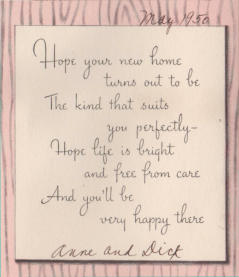 May 1950
Hope your new home
turns out to be
The kind that suits
you perfectly-
Hope life is bright
and free from care
And you'll be
very happy there
Anne and Dick